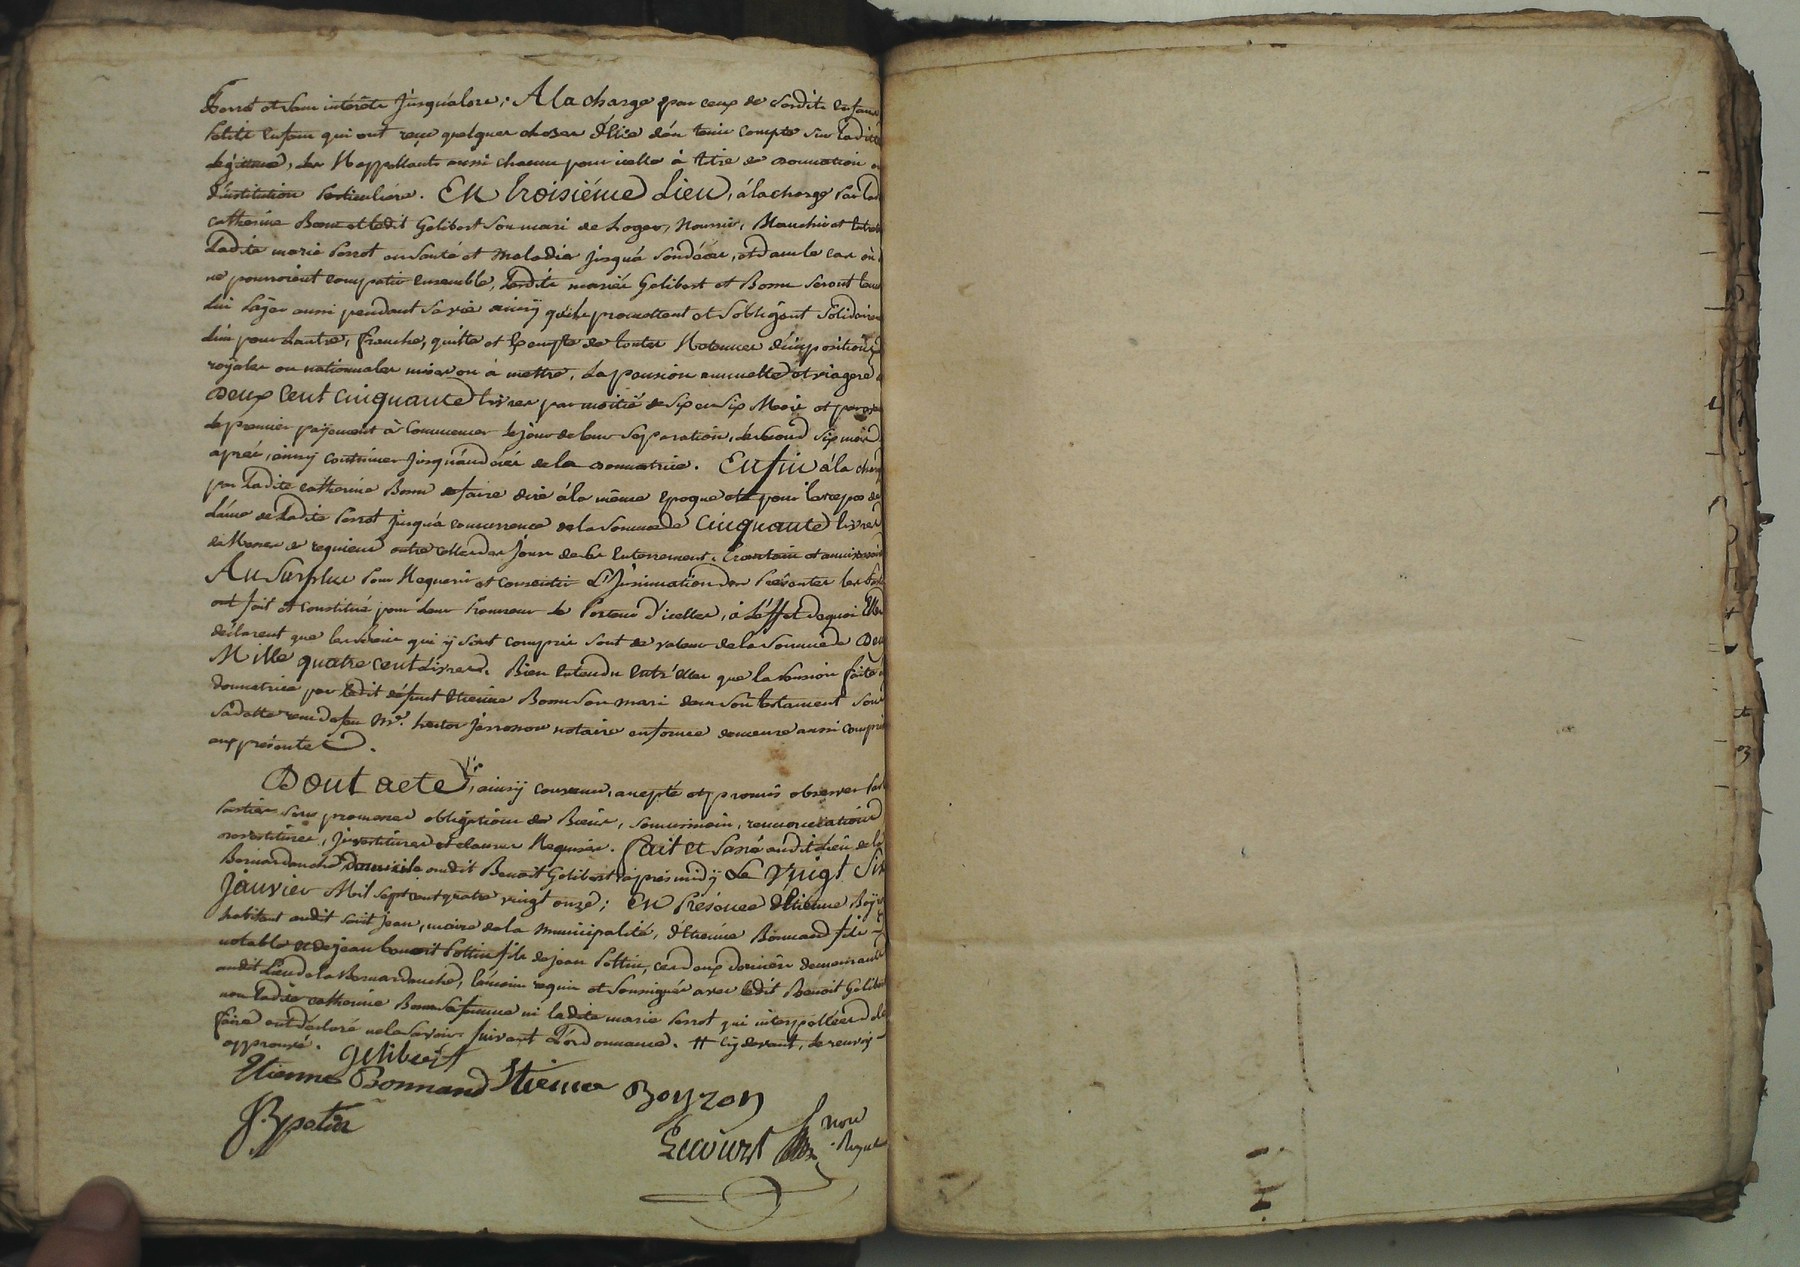 Perrot et sans intérêts jusqu'alors; A la charge par ceux de sesdits enfans
petits enfans qui ont reçu quelques choses d'Elle d'en tenir compte sur ladite
légitime, les Rappellants aussi chacun pour icelle à titre de donnation
d'institution particulière. En troisiéme Lieu, à la charge par lad
catherine Bonn et ledit Gelibert son mari de Loger, Nourrir, Blanchir et
Ladite marie Perrot en santé et maladie jusqu'à son décès, et dans le cas où
ne pourroient compatir ensemble, Lesdits mariés Gelibert et Bonn seront
Lui payer aussi pendant sa vie ainsy qu'ils promettent et s'obligent solidaire
L'un pour L'autre, franche, quitte et Exempte de toutes Retenues d'impositions
royales ou nationnales mises ou à mettre, La pension annuelle et viagere
Deux Cent Cinquante livres par moitié de six en six Mois et par
Le premier payement à Commencer le jour de leur séparation, le second six mois
après, ainsy continuer jusqu'au décès de la donnatrice. Enfin à la charge
par Ladite catherine Bonn de faire dire à la même Epoque et pour le repos de
L'âme de Ladite Perrot jusqu'à concurrence de la somme de Cinquante livres
de Messes de requiem outre celles des jours de son Enterrement,
Au Surplus Pour Requerir et Consentir L'Insinuation des Présentes les
ont fait et Constitué pour leur Procureur le Porteur d'icelles, à L'éffet de quoi Elles
déclarent que les biens qui y sont compris sont de valeur de la somme de Deux
Mille quatre cent Livres. Bien entendu entr'Elles que la pension faite à
donnatrice par ledit défunt Etienne Bonn son mari dans son testament sous
sa datte reçu de feu Me. notaire en forme demeure aussi compris
aux présentes.
Dont acte, ainsy convenu, accepté et promis observer
parties sous promesses obligations de Biens, soumissions, renonciations
investitures et clauses Requises. Fait et Passé audit Lieu de la
Bernardouche Domicile audit Benoit Gelibert après midy Le Vingt Six
Janvier Mil Sept cent quatre vingt onze; En Présence d'Etienne Boyron
habitant audit saint Jean, maire de la municipalité, d'Etienne Bonnand fils
notable et de jean benoit Pottin fils de jean Pottin, ces deux derniers demeurants
audit Lieu de la Bernardouche, temoins requis et soussignés avec ledit Benoit Gelibert
non Ladite catherine Bonn sa femme ni ladite marie Perrot qui interpellées de le
faire ont déclaré ne le savoir suivant L'ordonnance. # cy devant, le renvoy
approuvé.
Gelibert
Etienne Bonnand Etienne Boyron
J. B potin
Lecourt Nore
Royal